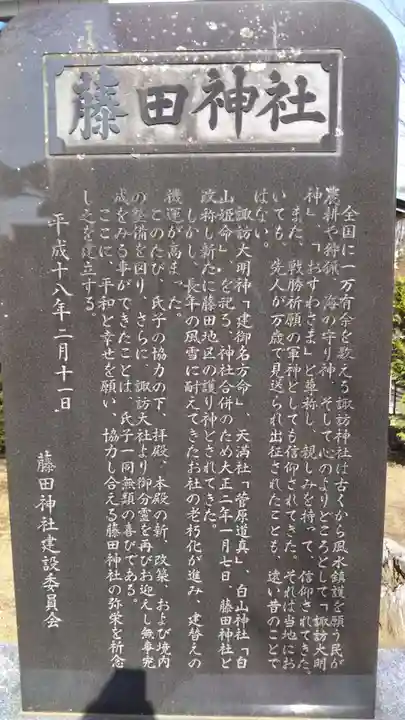 藤田神社
全国に一万有余を数える諏訪神社は古くから風水鎮護を願う民が
農耕や狩猟、海の守り神、そして心のよりどころとして「諏訪大明
神」、「おすわさま」と尊称し、親しみを持って、信仰されてきた。
また、戦勝祈願の軍神としても信仰されてきた。それは当地にお
いても、先人が万歳で見送られ出征されたことも、遠い昔のことで
はない。
諏訪大明神「建御名方命」、天満社「菅原道真」、白山神社「白
山姫命」を祀る、神社合併のため大正二年一月七日、藤田神社と
改称し新たに藤田地区の護り神とされてきた。
しかし、長年の風雪に耐えてきたお社の老朽化が進み、建替えの
機運が高まった。
このたび、氏子の協力の下、拝殿、本殿の新、改築、および境内
の整備を図り、さらに、諏訪大社より御分霊を再びお迎えし無事完
成をみる事ができたことは、氏子一同無類の喜びである。
ここに、平和と幸せを願い、協力し合える藤田神社の弥栄を祈念
し之を建立する。
平成十八年二月十一日
藤田神社建設委員会